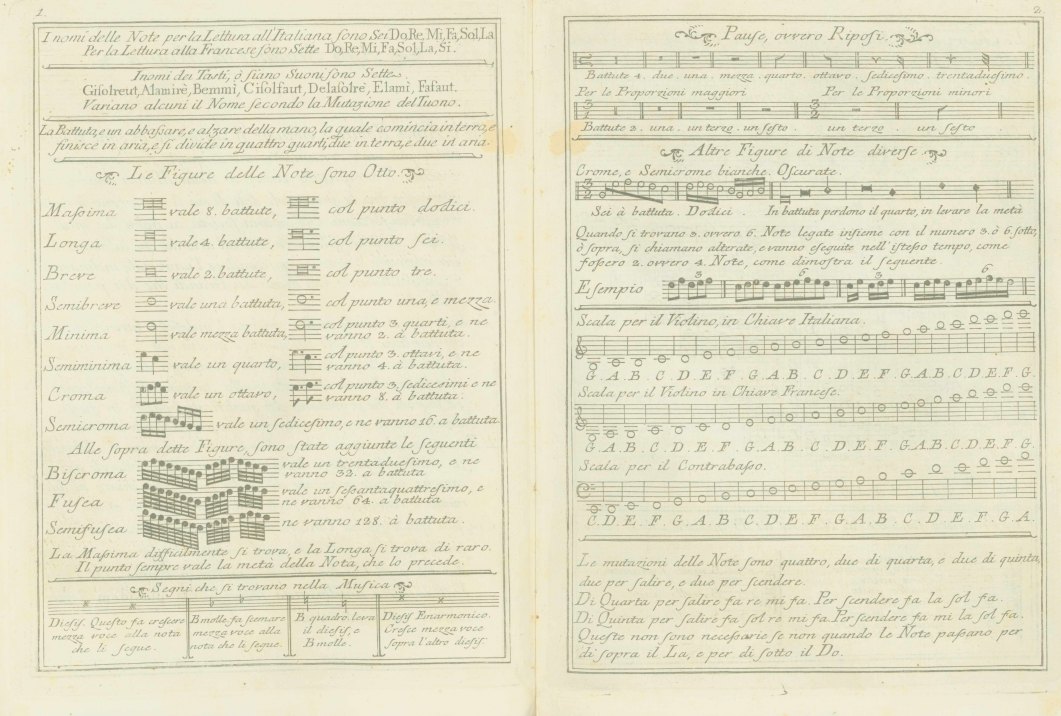 1.
I nomi delle Note per la Lettura all'Italiana sono Sei Do, Re, Mi, Fa, Sol, La
Per la Lettura alla Francese sono Sette Do, Re, Mi, Fa, Sol, La, Si.
I nomi dei Tasti, ò siano Suoni sono Sette
Gisolreut, Alamirè, Bemmi, Cisolfaut, Delasolre, Elami, Fafaut.
Variano alcuni il Nome secondo la Mutazione del Tuono.
La Battuta, e un abbassare, e alzare della mano, la quale comincia in terra, e
finisce in aria, e si divide in quattro quarti, due in terra, e due in aria.
Le Figure delle Note sono Otto.
Massima vale 8. battute, col punto dodici.
Longa vale 4. battute, col punto sei.
Breve vale 2. battute, col punto tre.
Semibreve vale una battuta, col punto una, e mezza.
Minima vale mezza battuta, col punto 3 quarti, e ne
vanno 2. à battuta.
Semiminima vale un quarto, col punto 3. ottavi, e ne
vanno 4. à battuta.
Croma vale un ottavo, col punto 3. sedicesimi e ne
vanno 8. à battuta.
Semicroma vale un sedicesimo, e ne vanno 16. a battuta
Alle sopra dette Figure, sono state aggiunte le seguenti
Biscroma vale un trentaduesimo, e ne
vanno 32. a battuta
Fusea vale un sessantaquattresimo, e
ne vanno 64. a battuta
Semifusea ne vanno 128. à battuta.
La Massima difficilmente si trova, e la Longa si trova di raro.
Il punto sempre vale la metà della Nota, che lo precede.
Segni che si trovano nella Musica
Diesis. Questo fa crescere
mezza voce alla nota
che li segue.
B molle fa scemare
mezza voce alla
nota che li segue.
B quadro leva
il diesis, e
B molle.
Diesis Enarmonico.
Cresce mezza voce
sopra l'altro diesis.
2.
Pause, ovvero Riposi.
Battute 4. due. una. mezza. quarto. ottavo. sedicesimo. trentaduesimo.
Per le Proporzioni maggiori Per le Proporzioni minori
Battute 2. una. un terzo. un sesto un terzo. un sesto
Altre Figure di Note diverse.
Crome, e Semicrome bianche. Oscurate.
Sei à battuta. Dodici. In battuta perdono il quarto, in levare la metà
Quando si trovano 3. ovvero 6. Note legate insieme con il numero 3. ò 6. sotto,
ò sopra, si chiamano alterate, e vanno eseguite nell'istesso tempo, come
fossero 2. ovvero 4. Note, come dimostra il seguente.
Esempio 3 6 3 6
Scala per il Violino, in Chiave Italiana.
G. A. B. C. D. E. F. G. A. B. C. D. E. F. G. A. B. C. D. E. F. G.
Scala per il Violino in Chiave Francese.
G. A. B. C. D. E. F. G. A. B. C. D. E. F. G. A. B. C. D. E. F. G.
Scala per il Contrabasso.
C. D. E. F. G. A. B. C. D. E. F. G. A. B. C. D. E. F. G. A.
Le mutazioni delle Note sono quattro, due di quarta, e due di quinta,
due per salire, e due per scendere.
Di Quarta per salire fa re mi fa. Per scendere fa la sol fa.
Di Quinta per salire fa sol re mi fa. Per scendere fa mi la sol fa.
Queste non sono necessarie se non quando le Note passano per
di sopra il La, e per di sotto il Do.